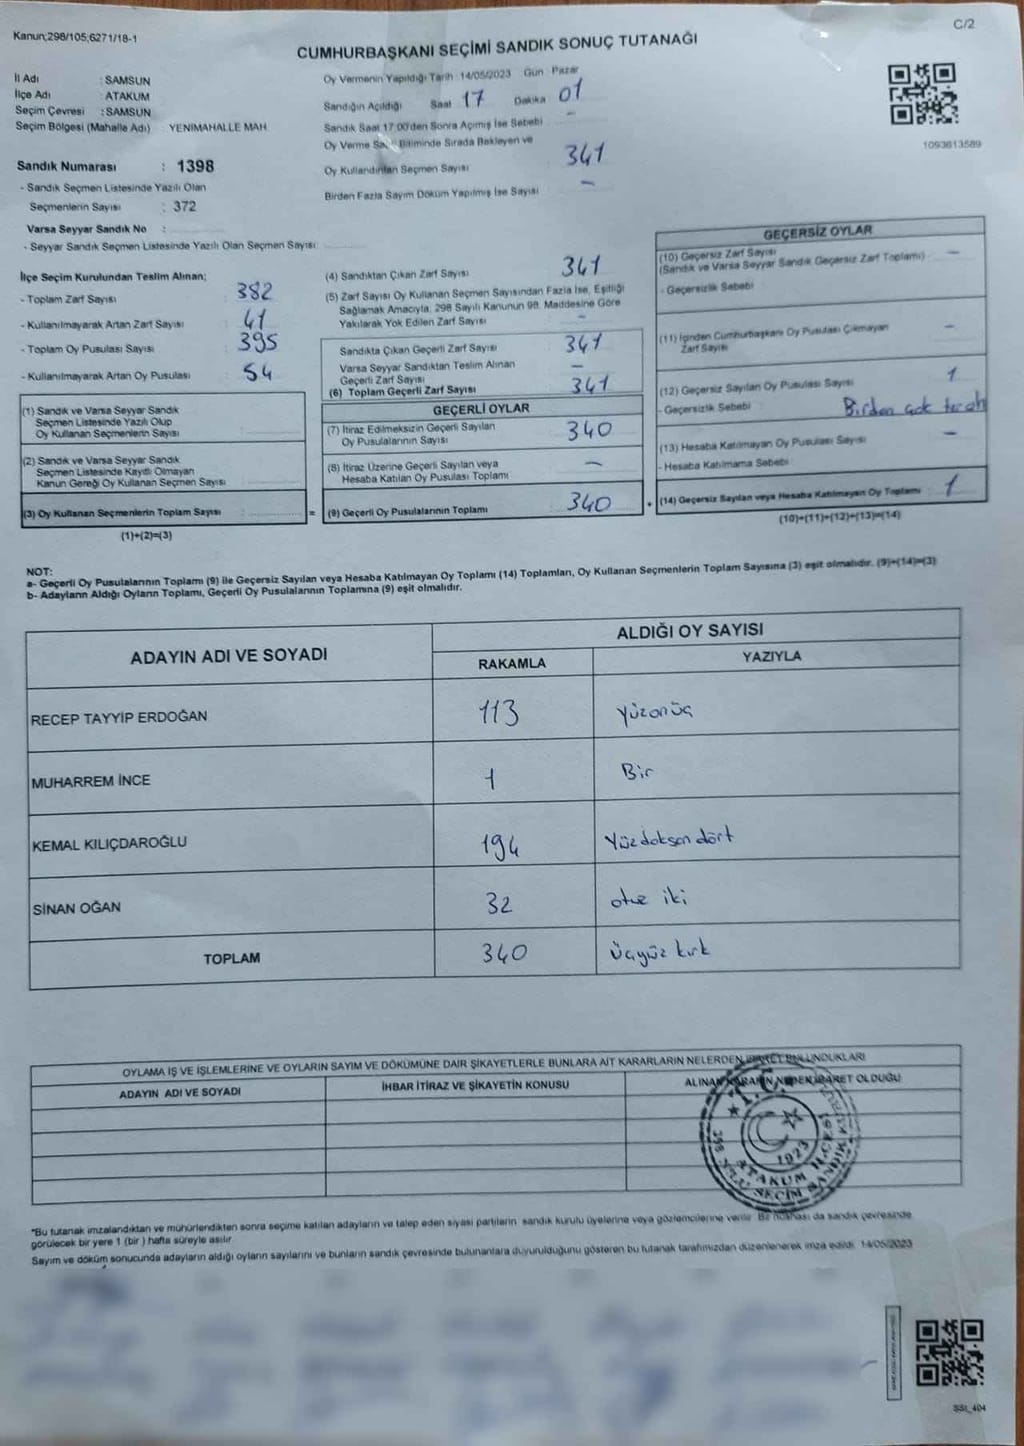 Kanun;298/105;6271/18-1
C/2
CUMHURBAŞKANI SEÇİMİ SANDIK SONUÇ TUTANAĞI
İl Adı : SAMSUN
İlçe Adı : ATAKUM
Seçim Çevresi : SAMSUN
Seçim Bölgesi (Mahalle Adı) : YENİMAHALLE MAH.
Sandık Numarası : 1398
- Sandık Seçmen Listesinde Yazılı Olan
Seçmenlerin Sayısı : 372
Varsa Seyyar Sandık No :
- Seyyar Sandık Seçmen Listesinde Yazılı Olan Seçmen Sayısı:
Oy Vermenin Yapıldığı Tarih : 14/05/2023 Gün : Pazar
Sandığın Açıldığı Saat 17 Dakika 01
Sandık Saat 17:00'den Sonra Açımış İse Sebebi —
Oy Verme Bitiminde Sırada Bekleyen ve
Oy Kullandırılan Seçmen Sayısı 341
Birden Fazla Sayım Döküm Yapılmış İse Sayısı —
1093613589
İlçe Seçim Kurulundan Teslim Alınan;
- Toplam Zarf Sayısı : 382
- Kullanılmayarak Artan Zarf Sayısı : 41
- Toplam Oy Pusulası Sayısı : 395
- Kullanılmayarak Artan Oy Pusulası : 54
(1) Sandık ve Varsa Seyyar Sandık
Seçmen Listesinde Yazılı Olup
Oy Kullanan Seçmenlerin Sayısı
(2) Sandık ve Varsa Seyyar Sandık
Seçmen Listesinde Kayıtlı Olmayan
Kanun Gereği Oy Kullanan Seçmen Sayısı
(3) Oy Kullanan Seçmenlerin Toplam Sayısı =
(1)+(2)=(3)
(4) Sandıktan Çıkan Zarf Sayısı 341
(5) Zarf Sayısı Oy Kullanan Seçmen Sayısından Fazla İse, Eşitliği
Sağlamak Amacıyla; 298 Sayılı Kanunun 98. Maddesine Göre
Yakılarak Yok Edilen Zarf Sayısı —
Sandıkta Çıkan Geçerli Zarf Sayısı 341
Varsa Seyyar Sandıktan Teslim Alınan
Geçerli Zarf Sayısı —
(6) Toplam Geçerli Zarf Sayısı 341
GEÇERLİ OYLAR
(7) İtiraz Edilmeksizin Geçerli Sayılan
Oy Pusulalarının Sayısı 340
(8) İtiraz Üzerine Geçerli Sayılan veya
Hesaba Katılan Oy Pusulası Toplamı —
(9) Geçerli Oy Pusulalarının Toplamı 340 +
GEÇERSİZ OYLAR
(10) Geçersiz Zarf Sayısı —
(Sandık ve Varsa Seyyar Sandık Geçersiz Zarf Toplamı)
- Geçersizlik Sebebi
(11) İçinden Cumhurbaşkanı Oy Pusulası Çıkmayan
Zarf Sayısı —
(12) Geçersiz Sayılan Oy Pusulası Sayısı 1
- Geçersizlik Sebebi : Birden çok tercih
(13) Hesaba Katılmayan Oy Pusulası Sayısı —
- Hesaba Katılmama Sebebi
(14) Geçersiz Sayılan veya Hesaba Katılmayan Oy Toplamı 1
(10)+(11)+(12)+(13)=(14)
NOT:
a- Geçerli Oy Pusulalarının Toplamı (9) ile Geçersiz Sayılan veya Hesaba Katılmayan Oy Toplamı (14) Toplamları, Oy Kullanan Seçmenlerin Toplam Sayısına (3) eşit olmalıdır. (9)+(14)=(3)
b- Adayların Aldığı Oyların Toplamı, Geçerli Oy Pusulalarının Toplamına (9) eşit olmalıdır.
ADAYIN ADI VE SOYADI
ALDIĞI OY SAYISI
RAKAMLA YAZIYLA
RECEP TAYYİP ERDOĞAN 113 Yüzonüç
MUHARREM İNCE 1 Bir
KEMAL KILIÇDAROĞLU 194 Yüzdoksan dört
SİNAN OĞAN 32 otuz iki
TOPLAM 340 üçyüz kırk
OYLAMA İŞ VE İŞLEMLERİNE VE OYLARIN SAYIM VE DÖKÜMÜNE DAİR ŞİKAYETLERLE BUNLARA AİT KARARLARIN NELERDEN İBARET BULUNDUKLARI
ADAYIN ADI VE SOYADI İHBAR İTİRAZ VE ŞİKAYETİN KONUSU ALINAN KARARIN NEDEN İBARET OLDUĞU
T.C.
1923
ATAKUM İLÇE
*Bu tutanak imzalandıktan ve mühürlendikten sonra seçime katılan adayların ve talep eden siyasi partilerin sandık kurulu üyelerine veya gözlemcilerine verilir. Bir nüshası da sandık çevresinde
görülecek bir yere 1 (bir ) hafta süreyle asılır.
Sayım ve döküm sonucunda adayların aldığı oyların sayılarını ve bunların sandık çevresinde bulunanlara duyurulduğunu gösteren bu tutanak tarafımızdan düzenlenerek imza edildi. 14/05/2023
SSI_404